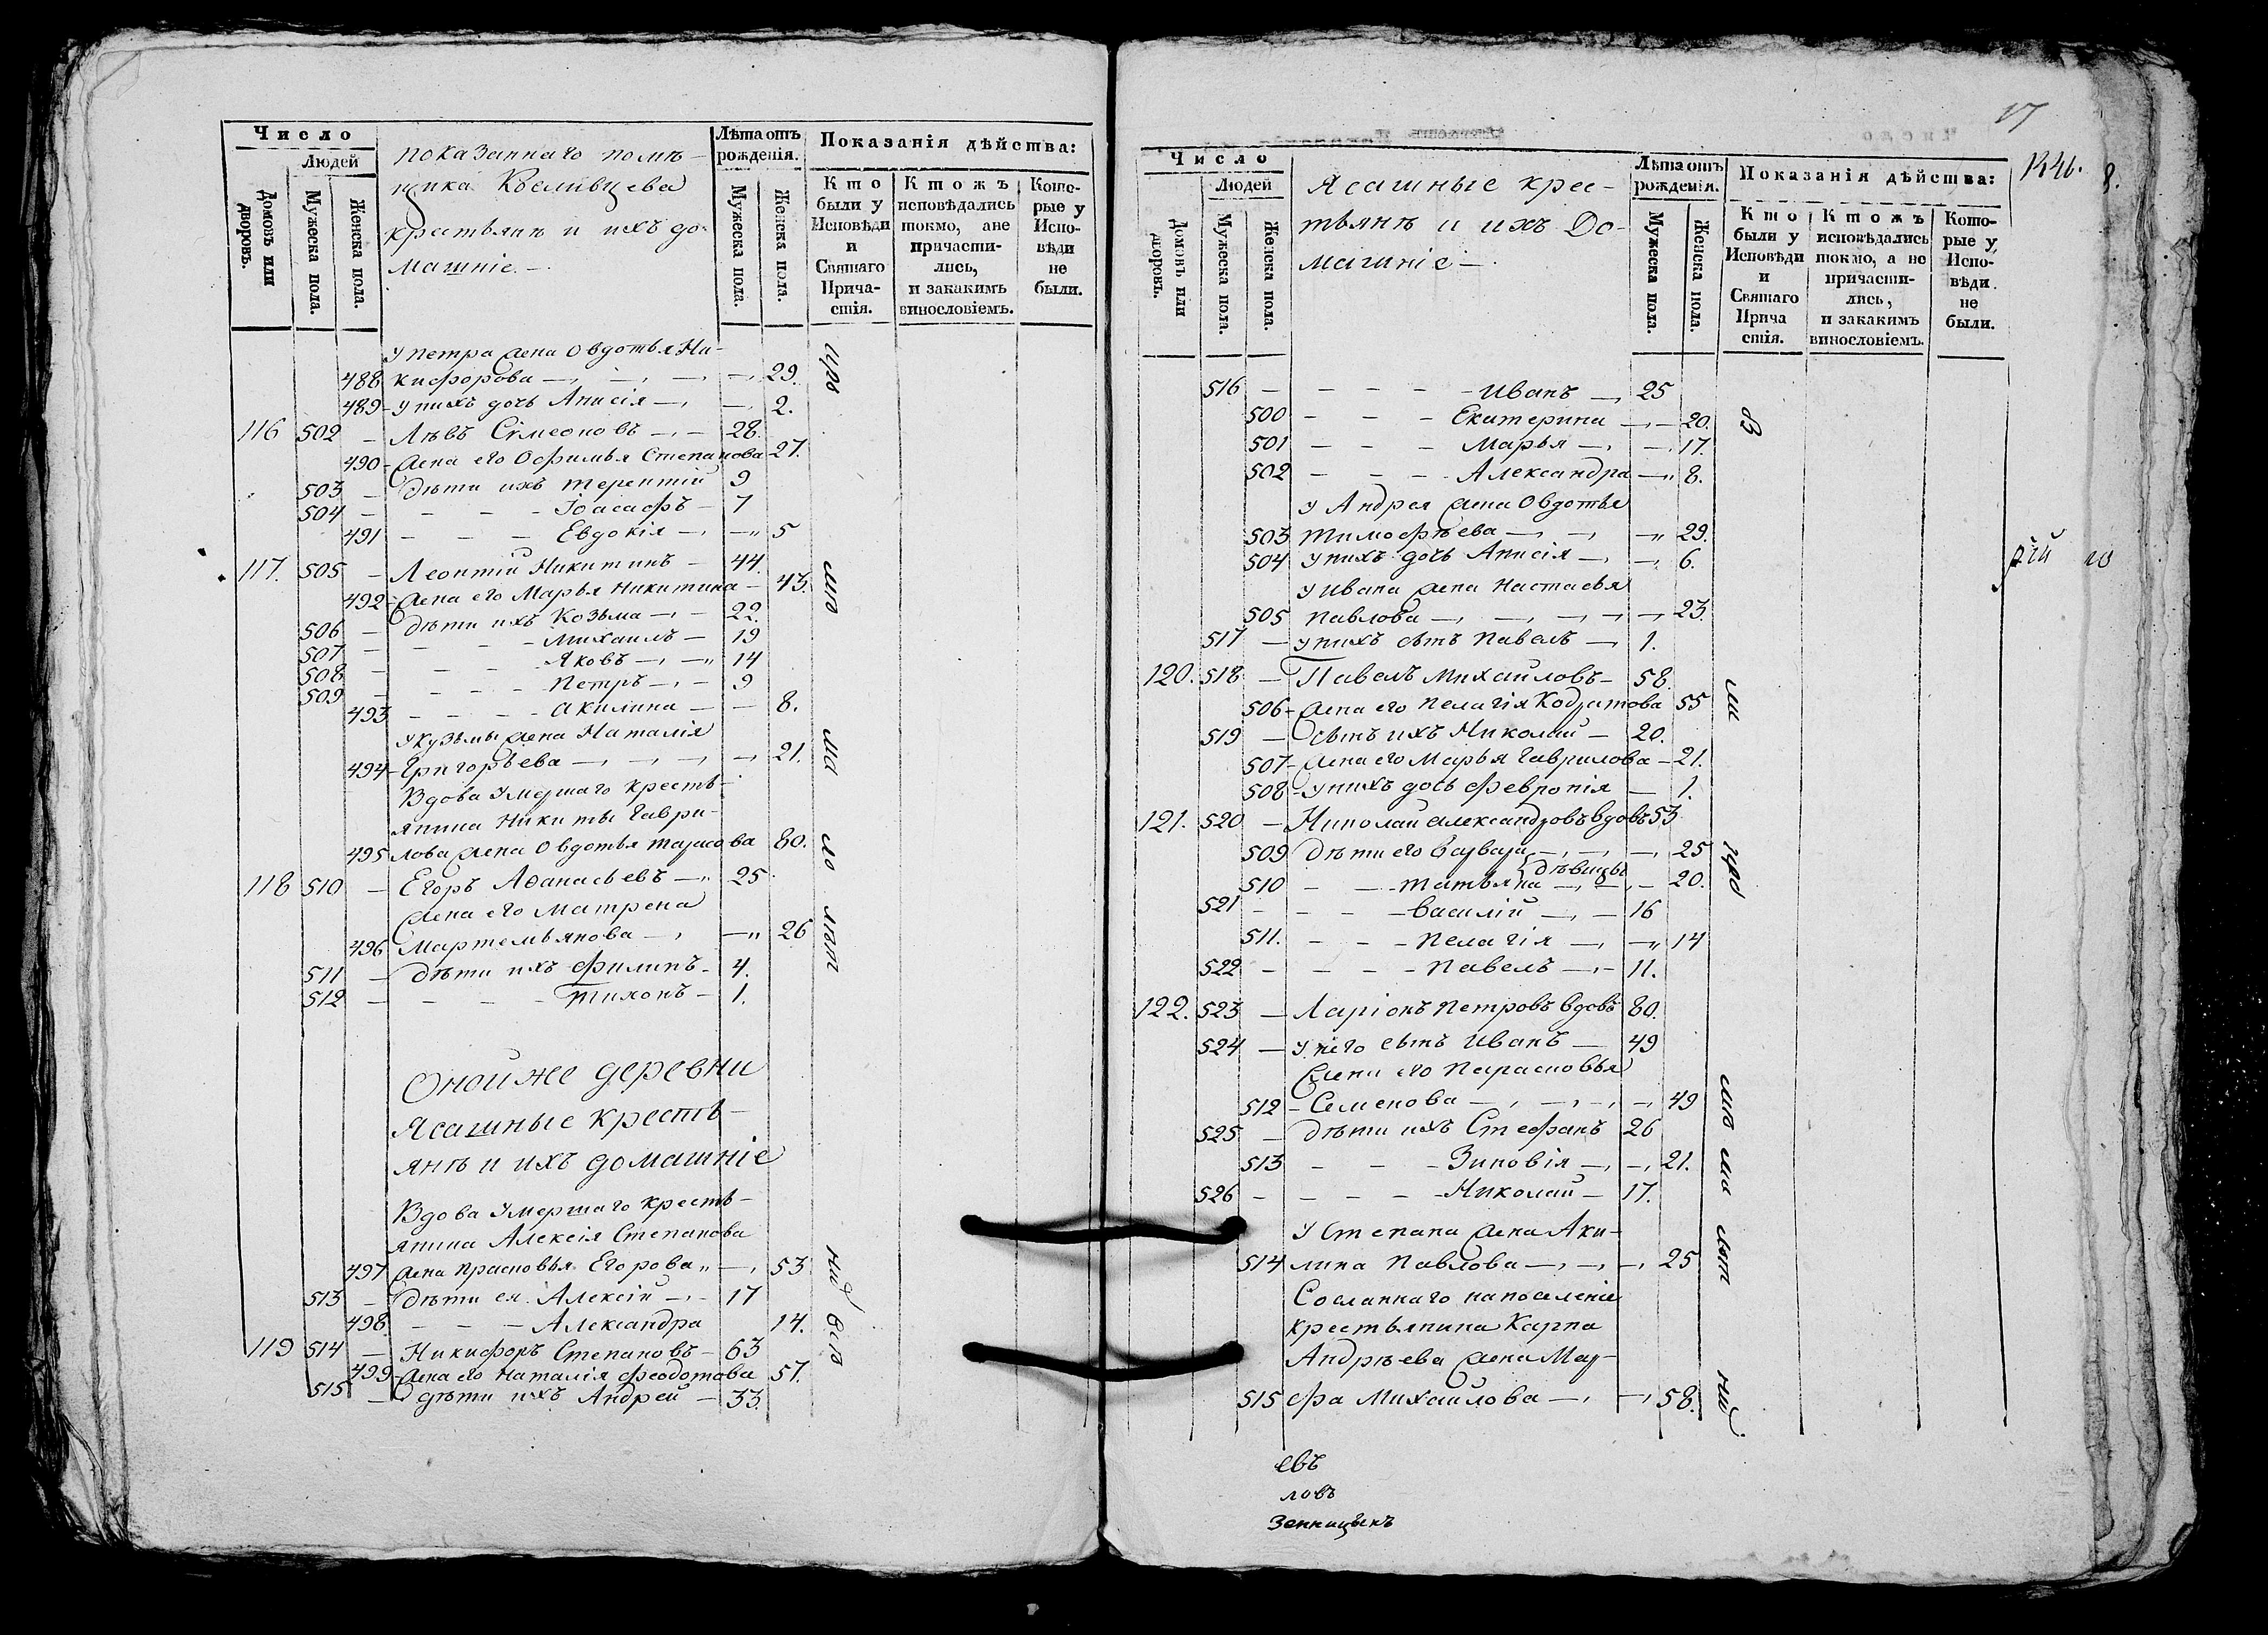 Число
Людей
Домовъ или дворовъ.
Мужеска пола.
Женска пола.
показаннаго помѣ-
щика
крестьянѣ и ихъ до-
машніе.
Лѣта отъ рожденія.
Мужеска пола.
Женска пола.
Показанія дѣйства:
Кто были у Исповѣди и Святаго Прича-стія.
Ктожъ исповѣдались токмо, ане причасти-лись, и закакимъ винословіемъ.
Кото-рые у Испо-вѣди не были.
у Петра жена Овдотья Ни-
488 кифорова 29.
489 у нихъ дочь Анисія 2.
116 502 Левъ Сѵмеоновъ 28.
490 жена его Офимья Степанова 27.
503 дѣти ихъ Терентій 9
504 Іоасафъ 7
491 Евдокія 5
117. 505 Леонтій Никитинъ 44
492 жена его Марья Никитина 43.
506 дѣти ихъ Козьма 22.
507 Михаилъ 19
508 Яковъ 14
509 Петръ 9
493 Акилина 8.
у кузьмы жена Наталія
494 Григорьева 21.
Вдова умершаго кресть-
янина Никиты Гаври-
495 лова жена Овдотья Тарасова 80.
118 510 Егоръ Афанасьевъ 25
жена его Матрена
496 Мартемьянова 26
511 дѣти ихъ Филипъ 4.
512 Тихонъ 1.
Оной же деревни
Ясашные кресть-
янѣ и ихъ домашніе
Вдова умершаго кресть-
янина Алексія Степанова
497 жена Прасковья Егорова 53
513 дѣти ея Алексій 17
498. Александра 14.
119 514 Никифоръ Степановъ 63
499 жена его Наталія Феодотова 57.
515 дѣти ихъ Андрей 33.
17
1846.
8.
Число
Людей
Домовъ или дворовъ.
Мужеска пола.
Женска пола.
Ясашные крес-
тьянѣ и ихъ До-
машніе
Лѣта отъ рожденія.
Мужеска пола.
Женска пола.
Показанія дѣйства:
Кто были у Исповѣди и Святаго Прича стія.
Ктожъ исповѣдались токмо, а не причасти-лись, и закакимъ винословіемъ.
Кото-рые у Испо-вѣди не были.
516 Иванъ 25
500 Екатерина 20.
501 Марья 17.
502 Александра 8.
у Андрея жена Овдотья
503 Тимофѣева 29.
504 у нихъ дочь Анисія 6.
у Ивана жена Настасья
505 Павлова 23.
517 у нихъ сынъ Павелъ 1.
120. 518 Павелъ Михаиловъ 58.
506 жена его Пелагія Кодратова 55
519 сынъ ихъ Николай 20.
507 жена его Марья Гаврилова 21.
508 у нихъ дочь Февронія 1.
121. 520 Николай Александровъ вдовъ 53
509 дѣти его Варвара 25
дѣвицы
510 Татьяна 20.
521 Василій 16
511. Пелагія 14
522 Павелъ 11.
122. 523 Ларіонъ Петровъ вдовъ 80.
524 у него сынъ Иванъ 49
жена его Парасковья
512 Семенова 49
525 дѣти ихъ Стефанъ 26
513 Зиновія 21.
526 Николай 17.
у Степана жена Аки-
514 лина Павлова 25
Сосланнаго на поселеніе
крестьянина Карпа
Андрѣева жена Мар-
515 фа Михаилова 58.
евъ
ловъ